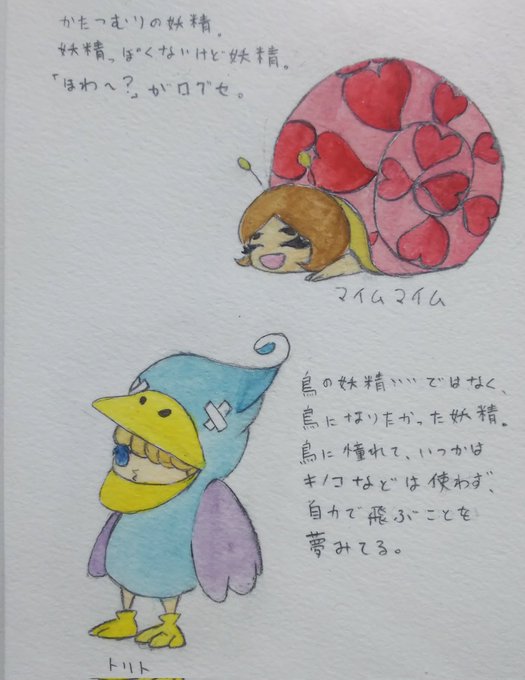 かたつむりの妖精。
妖精っぽくないけど妖精。
「ほわ〜?」が口グセ。
マイムマイム
鳥の妖精……ではなく、
鳥になりたかった妖精。
鳥に憧れて、いつかは
キノコなどは使わず、
自力で飛ぶことを
夢みてる。
トリト